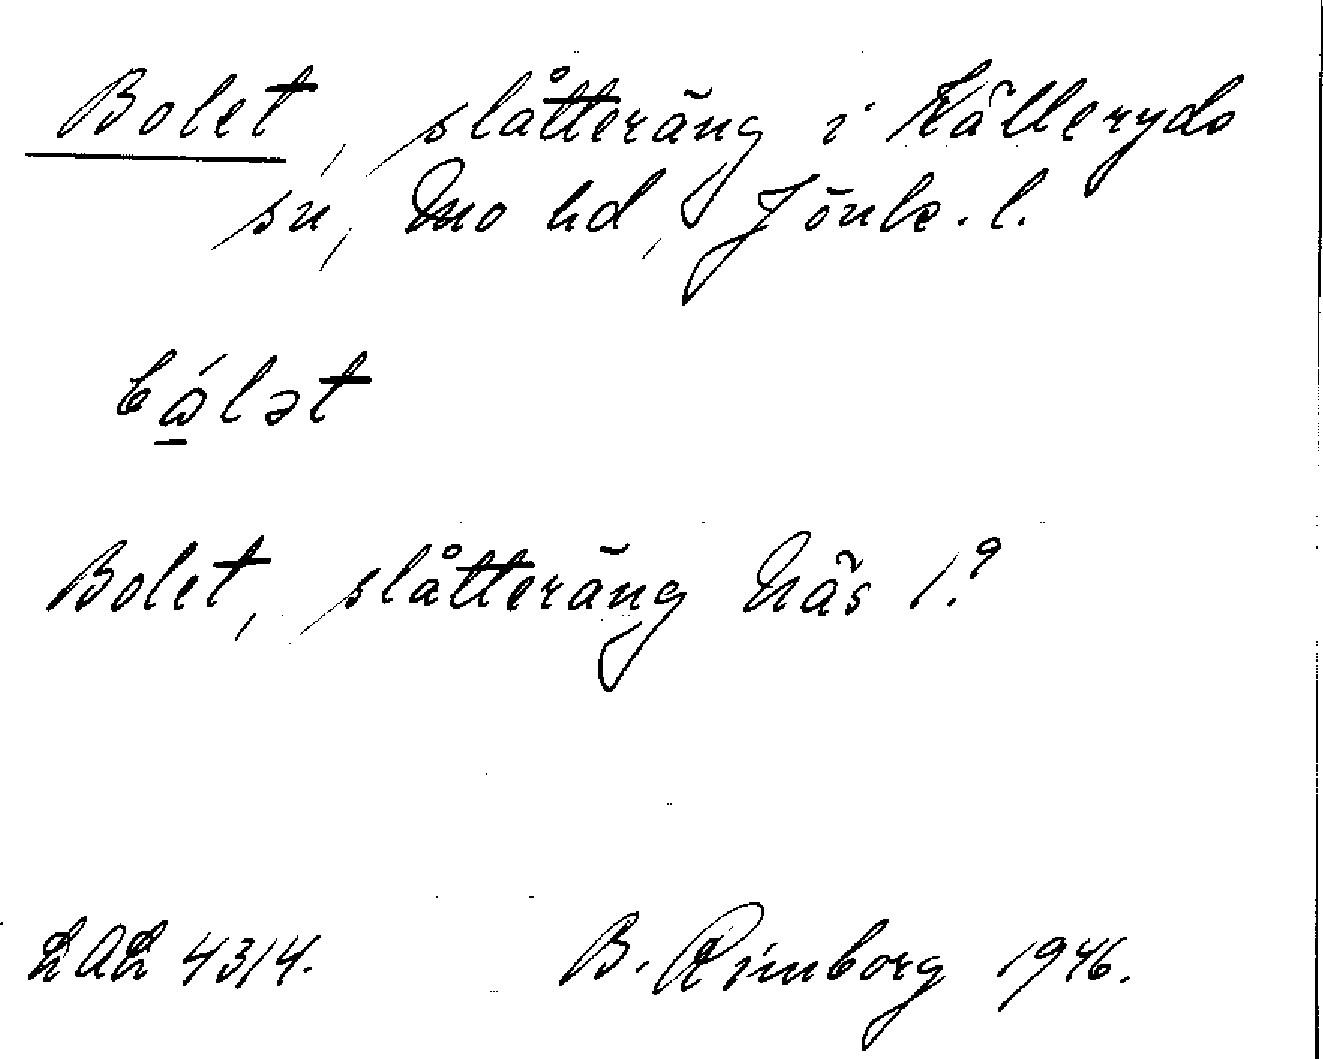 Bolet, slåtteräng i Källeryds
sn, Mo hd, Jönk. l.
bálət
Bolet, slåtteräng Näs 1.?
LAL 4314. B. Rimborg 1946.